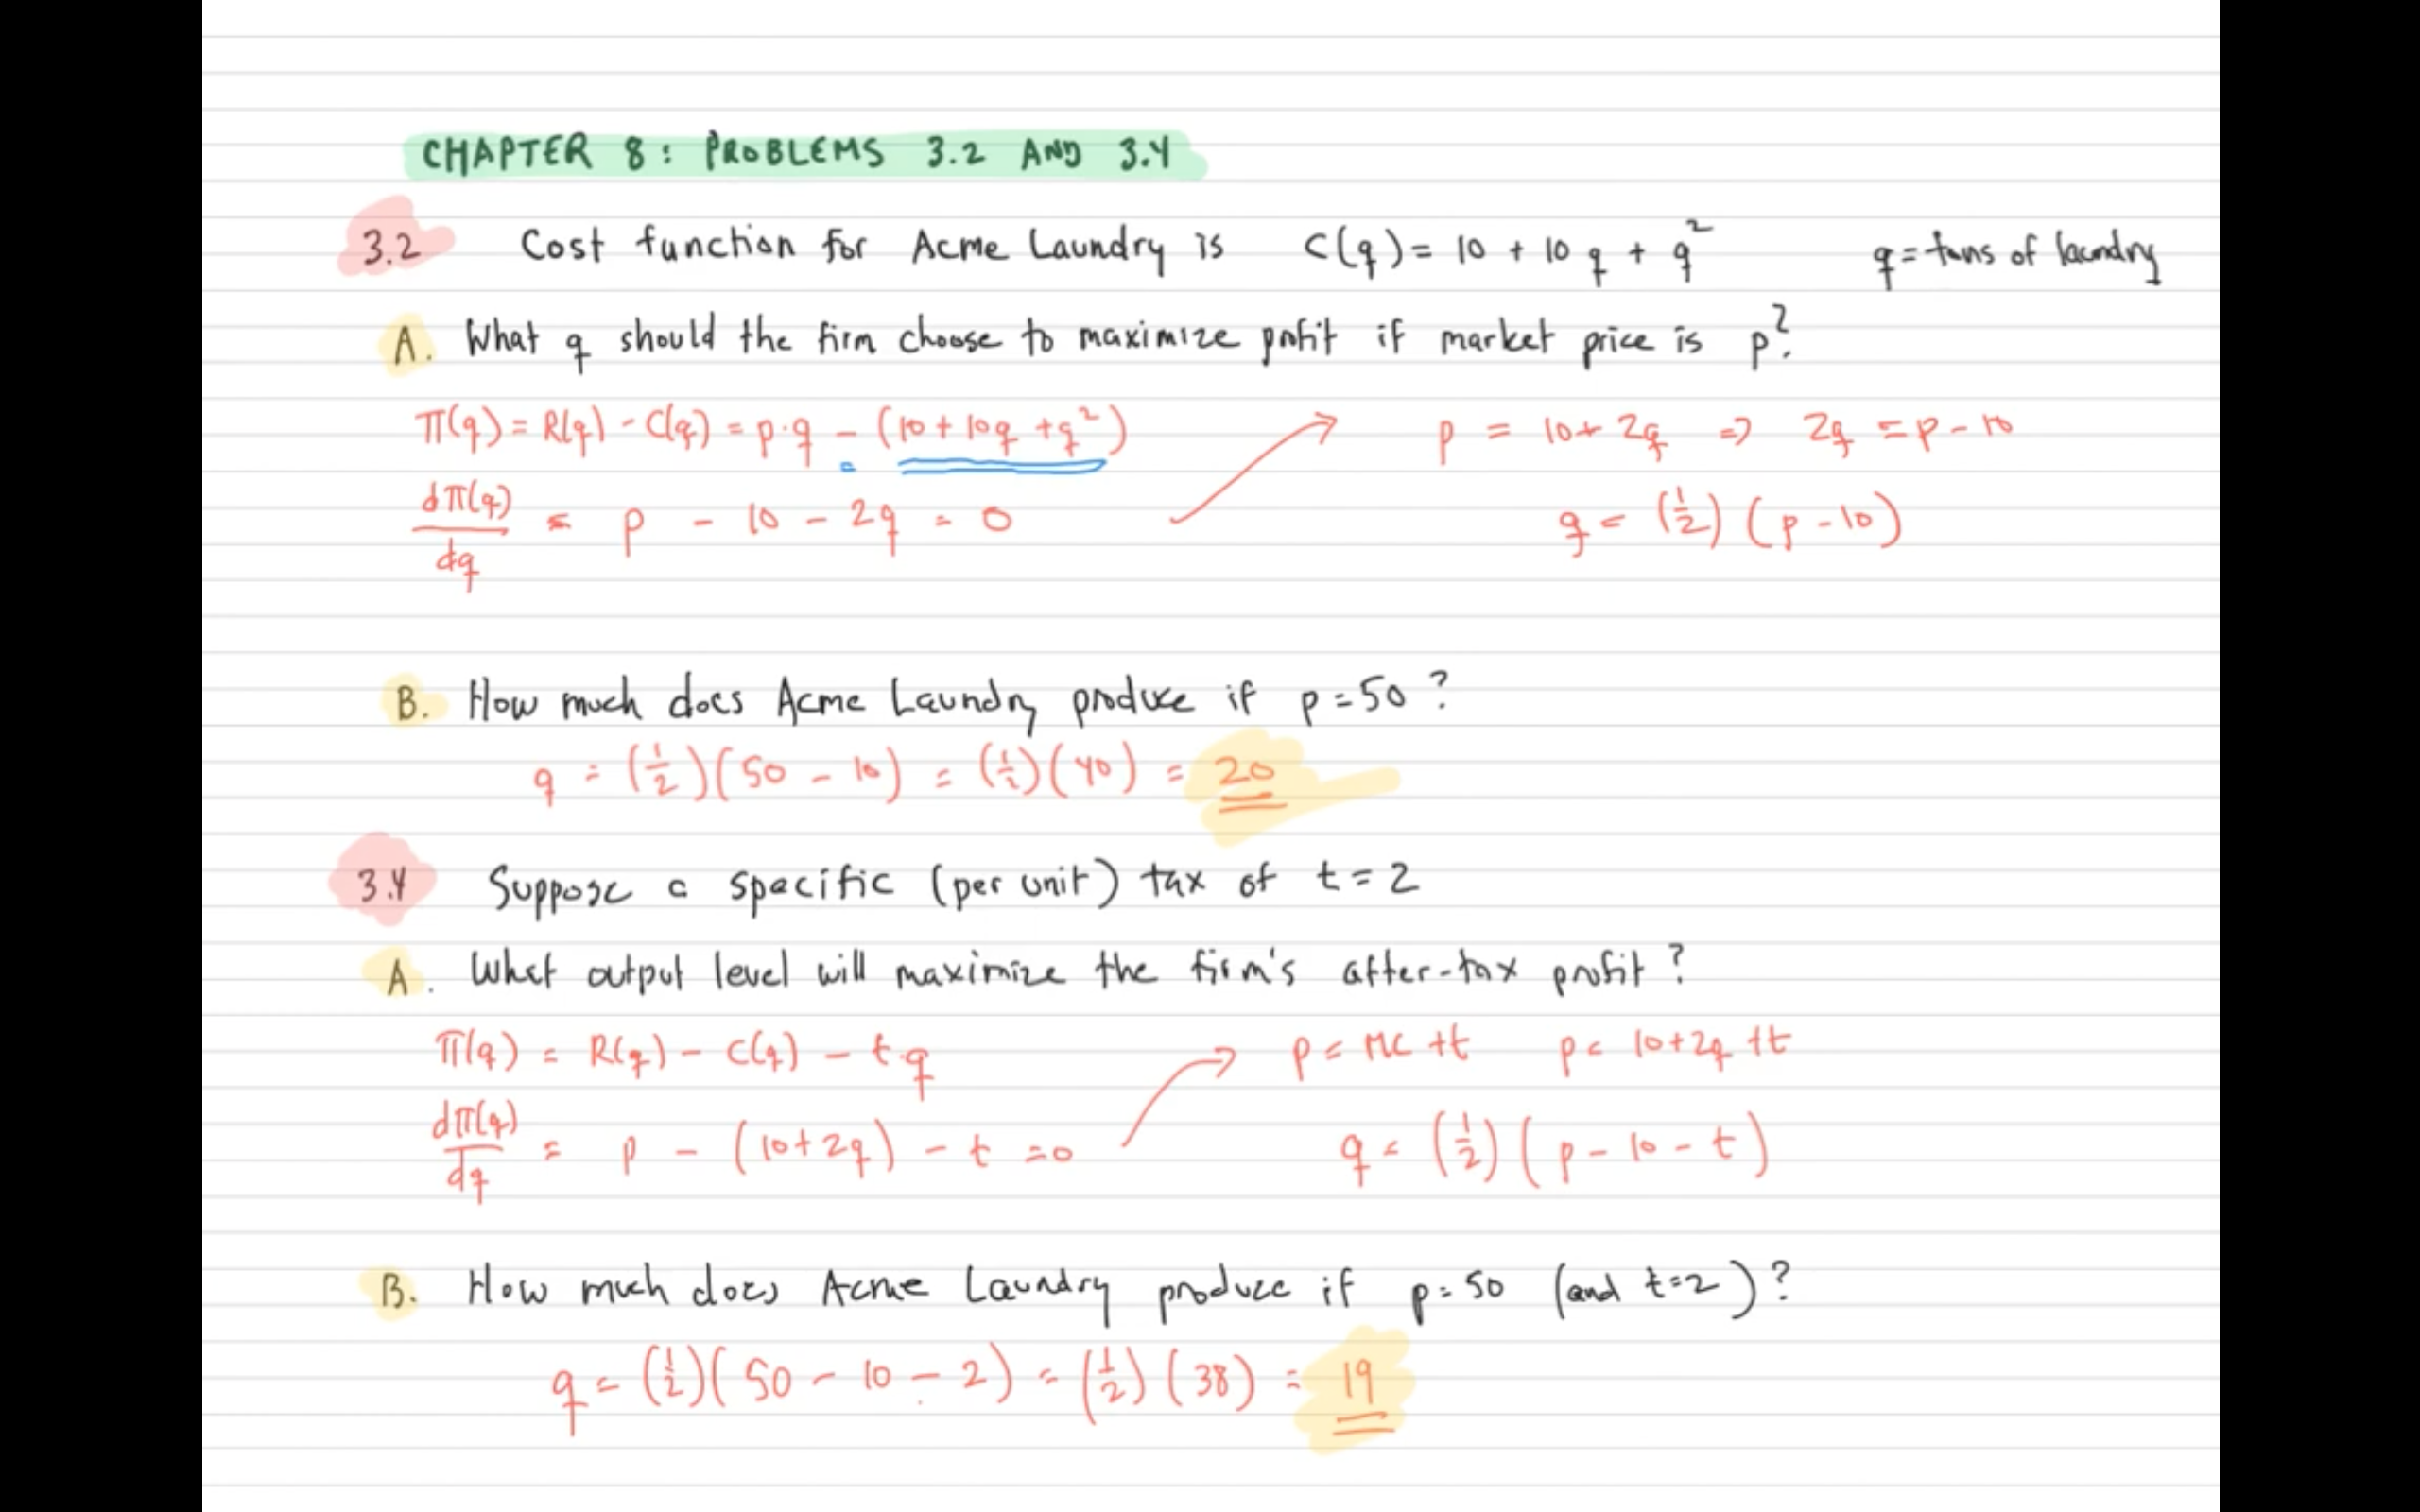 CHAPTER 8: PROBLEMS 3.2 AND 3.4
3.2 Cost function for Acme Laundry is C(q) = 10 + 10q + q² q = tons of laundry
A. What q should the firm choose to maximize profit if market price is p?
π(q) = R(q) - C(q) = p·q - (10 + 10q + q²)
p = 10 + 2q ⇒ 2q = p - 10
dπ(q)/dq = p - 10 - 2q = 0
q = (1/2) (p - 10)
B. How much does Acme Laundry produce if p = 50?
q = (1/2)(50 - 10) = (1/2)(40) = 20
3.4 Suppose a specific (per unit) tax of t = 2
A. What output level will maximize the firm's after-tax profit?
π(q) = R(q) - C(q) - t·q
p = MC + t p = 10 + 2q + t
dπ(q)/dq = p - (10 + 2q) - t = 0
q = (1/2) (p - 10 - t)
B. How much does Acme Laundry produce if p = 50 (and t = 2)?
q = (1/2)(50 - 10 - 2) = (1/2)(38) = 19